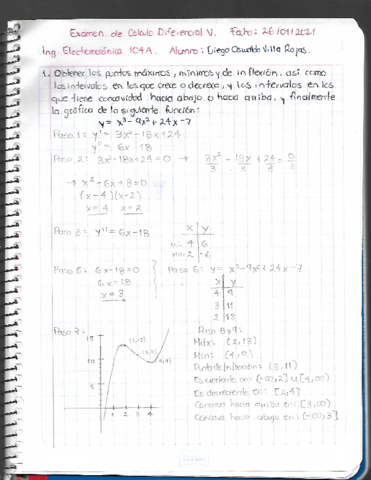 Examen de Calculo Diferencial V. Fecha: 26/01/2021
Ing. Electromecánica 104A. Alumno: Diego Oswaldo Villa Rojas.
1. Obtener los puntos máximos, mínimos y de inflexión, así como
los intervalos en los que crece o decrece, y los intervalos en los
que tiene concavidad hacia abajo o hacia arriba, y finalmente
la gráfica de la siguiente función:
y = x³ - 9x² + 24x - 7
Paso 1: y' = 3x² - 18x + 24
y'' = 6x - 18
Paso 2: 3x² - 18x + 24 = 0 → 3x²/3 - 18x/3 + 24/3 = 0/3
→ x² - 6x + 8 = 0
(x-4)(x-2)
x = 4 x = 2
Paso 3: y'' = 6x - 18
x y
4 6
2 -6
Paso 5: 6x - 18 = 0
6x = 18
x = 3
Paso 6: y = x³ - 9x² + 24x - 7
x y
4 9
3 11
2 13
Paso 7:
15
10
5
1 2 3 4
Paso 8 y 9:
Máx: (2,13)
Min: (4,9)
Punto de inflexión: (3,11)
Es creciente en: (-∞,2] U [4,∞)
Es decreciente en: [2,4]
Concava hacia arriba en: [3,∞)
Concava hacia abajo en: (-∞,3]